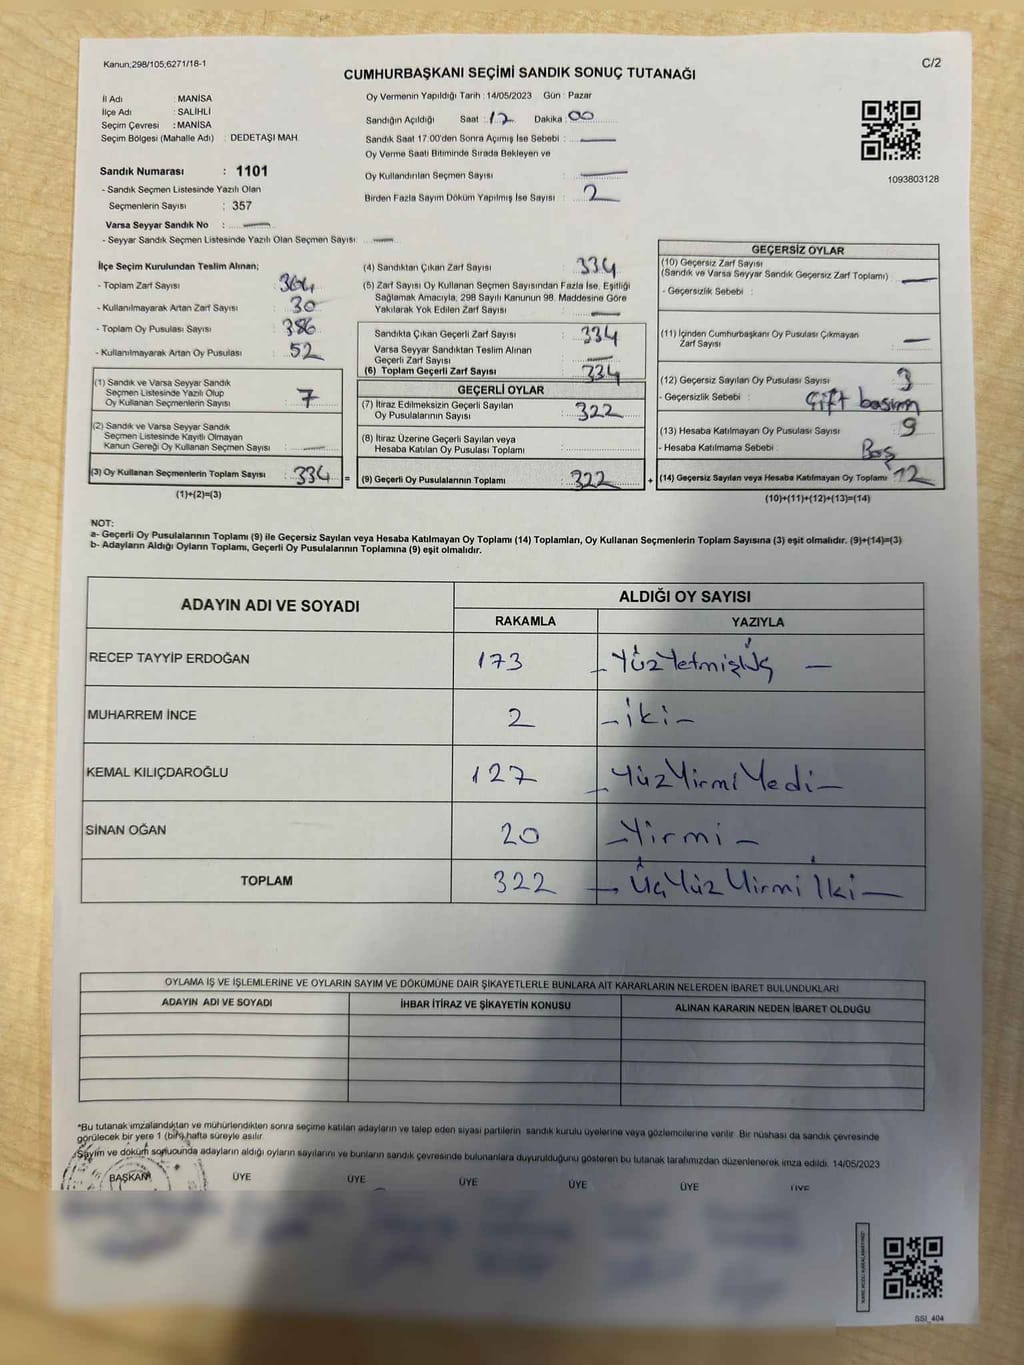 Kanun;298/105;6271/18-1
C/2
CUMHURBAŞKANI SEÇİMİ SANDIK SONUÇ TUTANAĞI
İl Adı : MANİSA
İlçe Adı : SALİHLİ
Seçim Çevresi : MANİSA
Seçim Bölgesi (Mahalle Adı) : DEDETAŞI MAH.
Sandık Numarası : 1101
- Sandık Seçmen Listesinde Yazılı Olan
Seçmenlerin Sayısı : 357
Varsa Seyyar Sandık No : —
- Seyyar Sandık Seçmen Listesinde Yazılı Olan Seçmen Sayısı : —
Oy Vermenin Yapıldığı Tarih : 14/05/2023 Gün : Pazar
Sandığın Açıldığı Saat : 17 Dakika : 00
Sandık Saat 17:00'den Sonra Açımış İse Sebebi : —
Oy Verme Saati Bitiminde Sırada Bekleyen ve
Oy Kullandırılan Seçmen Sayısı : —
Birden Fazla Sayım Döküm Yapılmış İse Sayısı : 2
1093803128
İlçe Seçim Kurulundan Teslim Alınan;
- Toplam Zarf Sayısı : 364
- Kullanılmayarak Artan Zarf Sayısı : 30
- Toplam Oy Pusulası Sayısı : 386
- Kullanılmayarak Artan Oy Pusulası : 52
(1) Sandık ve Varsa Seyyar Sandık
Seçmen Listesinde Yazılı Olup
Oy Kullanan Seçmenlerin Sayısı : 7
(2) Sandık ve Varsa Seyyar Sandık
Seçmen Listesinde Kayıtlı Olmayan
Kanun Gereği Oy Kullanan Seçmen Sayısı : —
(3) Oy Kullanan Seçmenlerin Toplam Sayısı : 334 =
(1)+(2)=(3)
(4) Sandıktan Çıkan Zarf Sayısı : 334
(5) Zarf Sayısı Oy Kullanan Seçmen Sayısından Fazla İse, Eşitliği
Sağlamak Amacıyla; 298 Sayılı Kanunun 98. Maddesine Göre
Yakılarak Yok Edilen Zarf Sayısı : —
Sandıkta Çıkan Geçerli Zarf Sayısı : 334
Varsa Seyyar Sandıktan Teslim Alınan
Geçerli Zarf Sayısı : —
(6) Toplam Geçerli Zarf Sayısı : 334
GEÇERLİ OYLAR
(7) İtiraz Edilmeksizin Geçerli Sayılan
Oy Pusulalarının Sayısı : 322
(8) İtiraz Üzerine Geçerli Sayılan veya
Hesaba Katılan Oy Pusulaları Toplamı :
(9) Geçerli Oy Pusulalarının Toplamı : 322 +
GEÇERSİZ OYLAR
(10) Geçersiz Zarf Sayısı
(Sandık ve Varsa Seyyar Sandık Geçersiz Zarf Toplamı) : —
- Geçersizlik Sebebi :
(11) İçinden Cumhurbaşkanı Oy Pusulası Çıkmayan
Zarf Sayısı : —
(12) Geçersiz Sayılan Oy Pusulası Sayısı : 3
- Geçersizlik Sebebi : Çift basım
(13) Hesaba Katılmayan Oy Pusulası Sayısı : 9
- Hesaba Katılmama Sebebi : Boş
(14) Geçersiz Sayılan veya Hesaba Katılmayan Oy Toplamı : 12
(10)+(11)+(12)+(13)=(14)
NOT:
a- Geçerli Oy Pusulalarının Toplamı (9) ile Geçersiz Sayılan veya Hesaba Katılmayan Oy Toplamı (14) Toplamları, Oy Kullanan Seçmenlerin Toplam Sayısına (3) eşit olmalıdır. (9)+(14)=(3)
b- Adayların Aldığı Oyların Toplamı, Geçerli Oy Pusulalarının Toplamına (9) eşit olmalıdır.
ADAYIN ADI VE SOYADI
ALDIĞI OY SAYISI
RAKAMLA YAZIYLA
RECEP TAYYİP ERDOĞAN 173 – YüzYetmişÜç —
MUHARREM İNCE 2 – iki –
KEMAL KILIÇDAROĞLU 127 – YüzYirmiYedi –
SİNAN OĞAN 20 – Yirmi –
TOPLAM 322 – ÜçYüzYirmiİki –
OYLAMA İŞ VE İŞLEMLERİNE VE OYLARIN SAYIM VE DÖKÜMÜNE DAİR ŞİKAYETLERLE BUNLARA AİT KARARLARIN NELERDEN İBARET BULUNDUKLARI
ADAYIN ADI VE SOYADI İHBAR İTİRAZ VE ŞİKAYETİN KONUSU ALINAN KARARIN NEDEN İBARET OLDUĞU
*Bu tutanak imzalandıktan ve mühürlendikten sonra seçime katılan adayların ve talep eden siyasi partilerin sandık kurulu üyelerine veya gözlemcilerine verilir. Bir nüshası da sandık çevresinde
görülecek bir yere 1 (bir) hafta süreyle asılır.
Sayım ve döküm sonucunda adayların aldığı oyların sayılarını ve bunların sandık çevresinde bulunanlara duyurulduğunu gösteren bu tutanak tarafımızdan düzenlenerek imza edildi. 14/05/2023
BAŞKAN ÜYE ÜYE ÜYE ÜYE ÜYE ÜYE
SSI_404